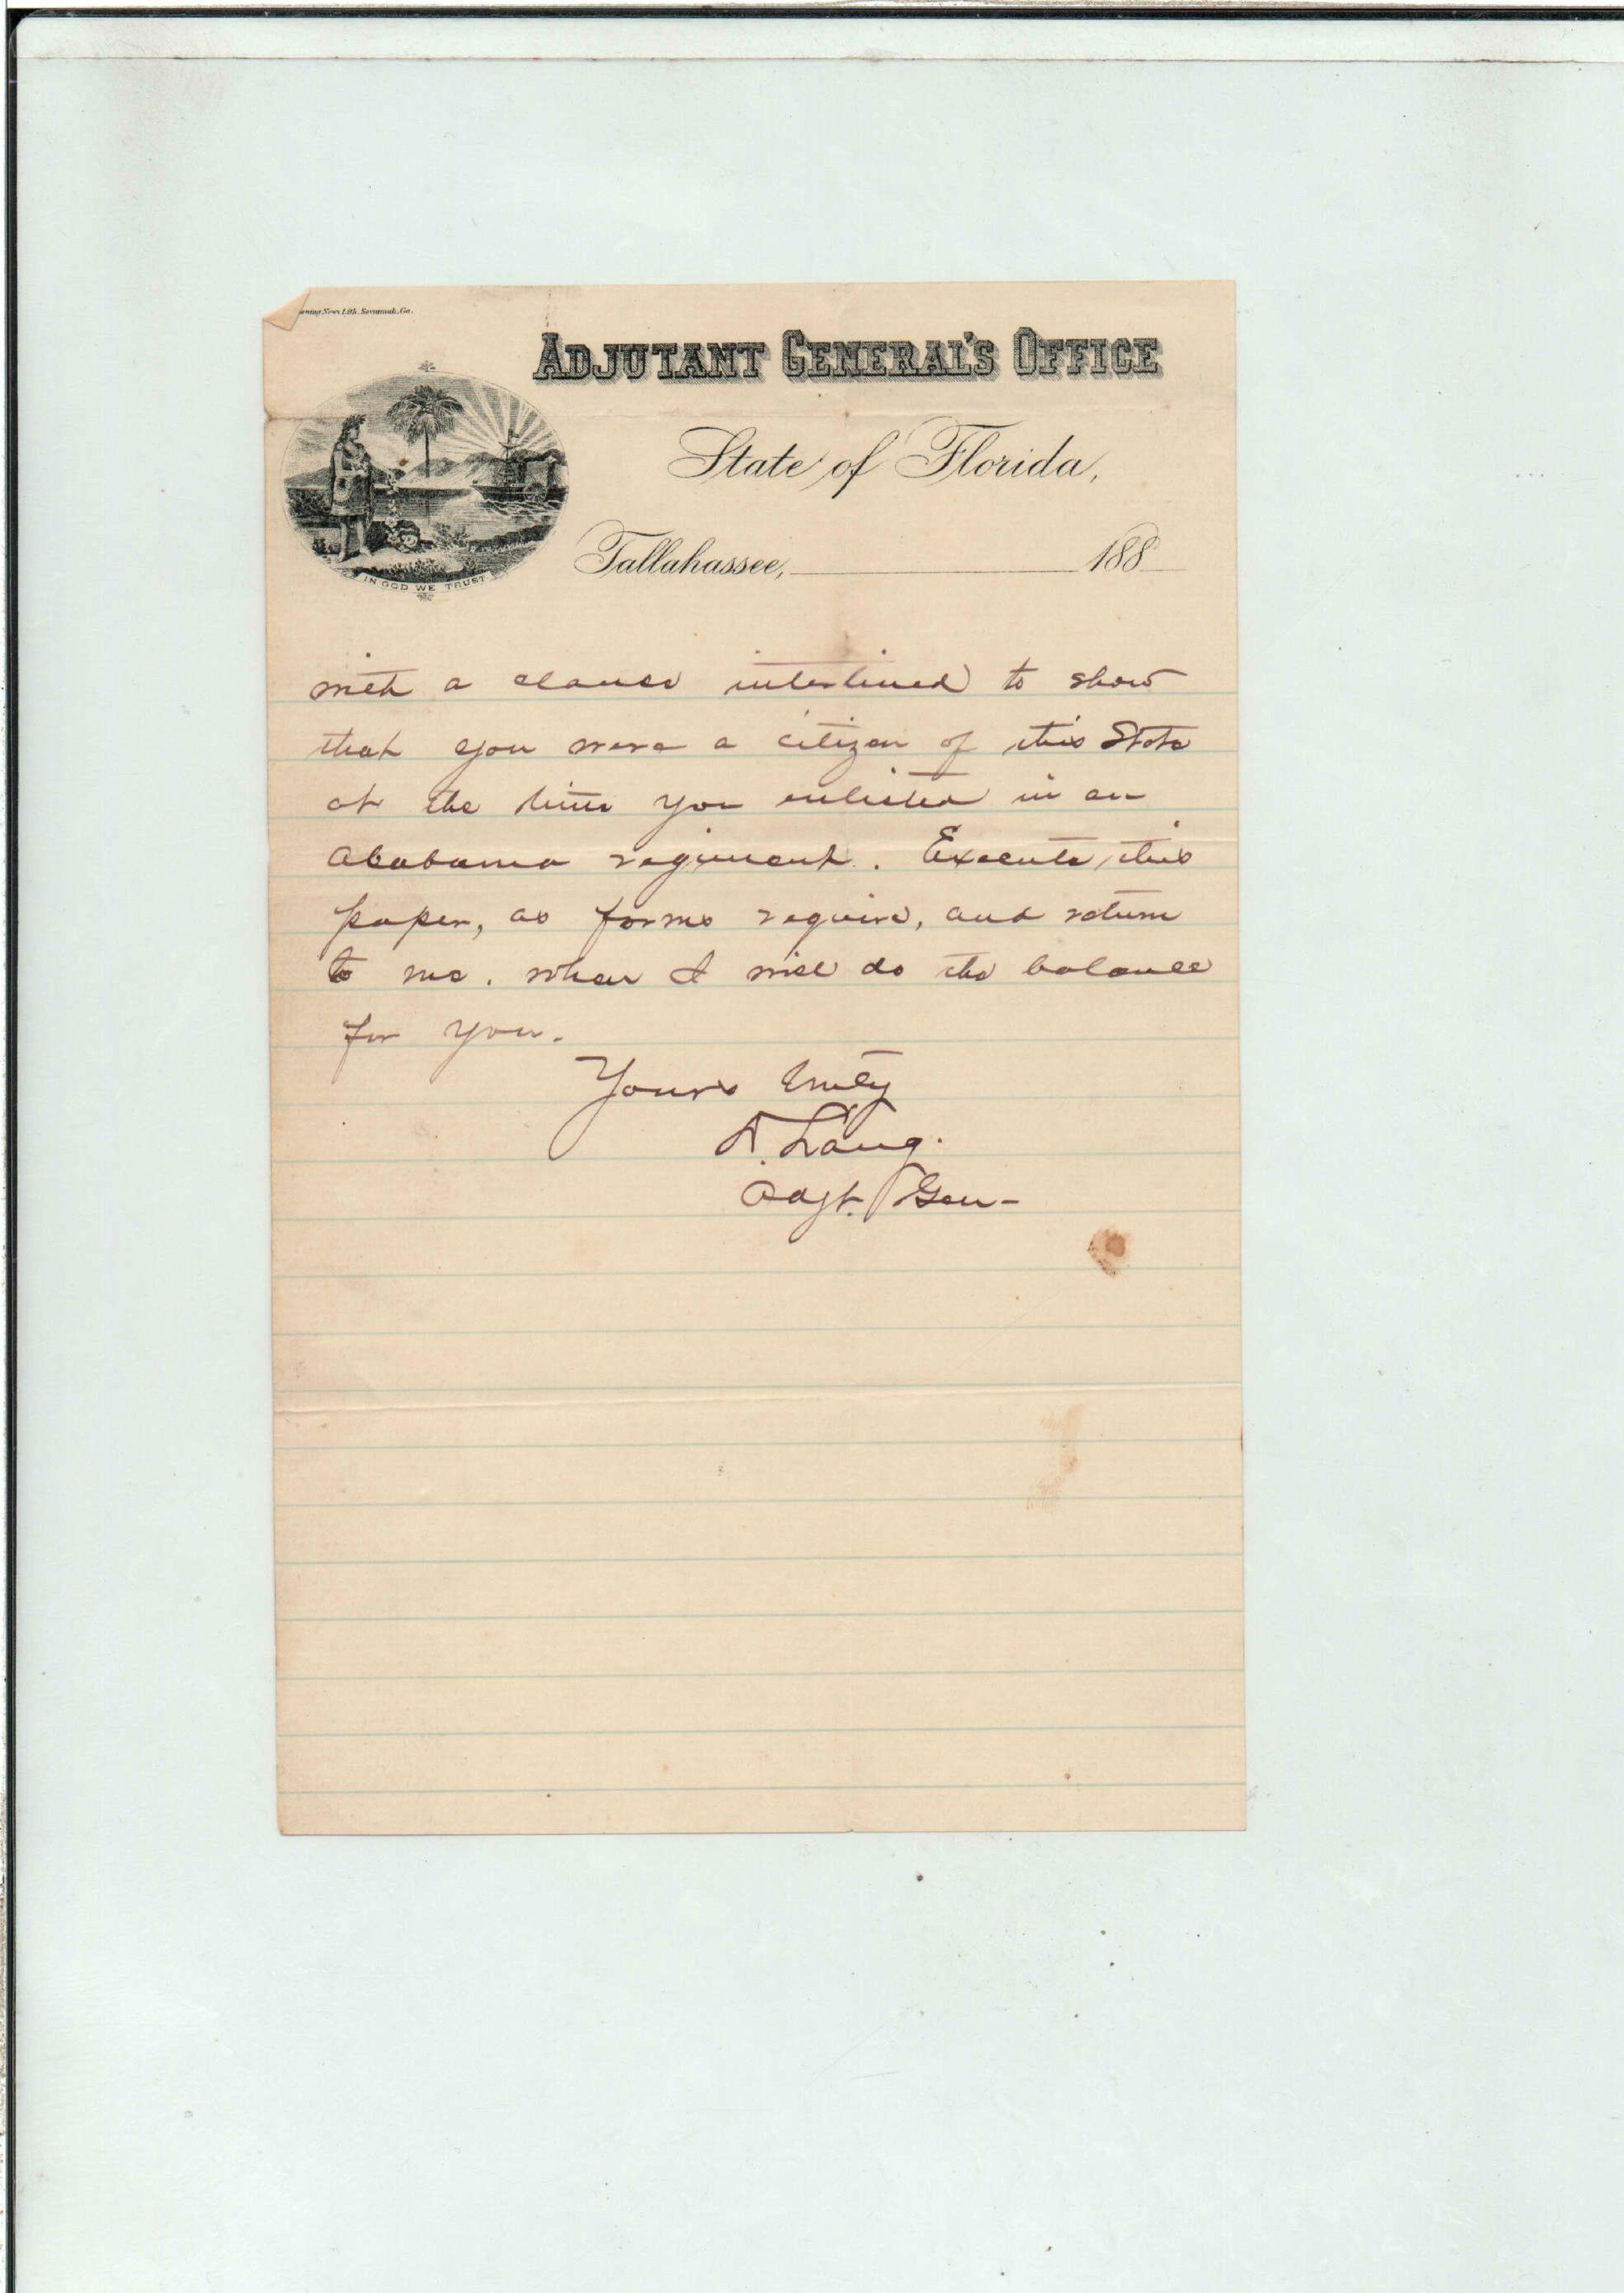 ening News Lith. Savannah, Ga.
ADJUTANT GENERAL'S OFFICE
State of Florida,
Tallahassee, 188
IN GOD WE TRUST
with a clause interlined to show
that you were a citizen of this State
at the time you enlisted in an
Alabama regiment. Execute this
paper, as forms require, and return
to me. when I will do the balance
for you.
Yours truly
D. Lang.
Adjt. Gen-